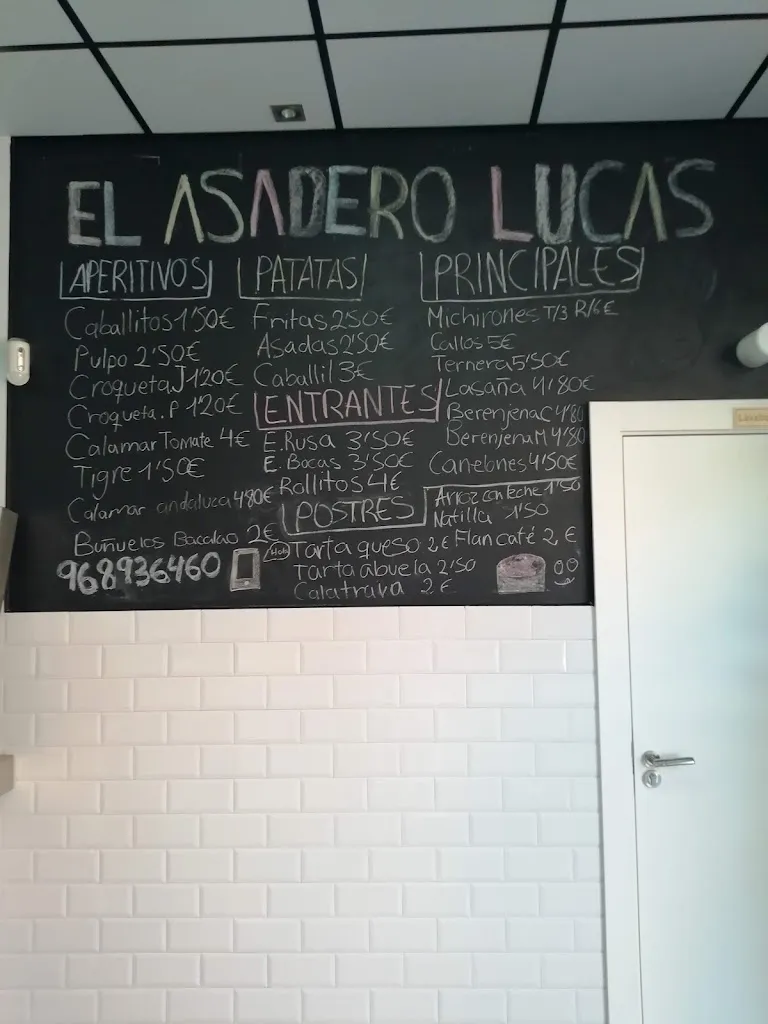 EL ASADERO LUCAS
APERITIVOS
Caballitos 1'50€
Pulpo 2'50€
Croqueta J 1'20€
Croqueta. P 1'20€
Calamar Tomate 4€
Tigre 1'50€
Calamar andaluza 4'80€
Buñuelos Bacalao 2€
968936460
Hola
PATATAS
Fritas 2'50€
Asadas 2'50€
Caballil 3€
ENTRANTES
E. Rusa 3'50€
E. Bocas 3'50€
Rollitos 4€
PRINCIPALES
Michirones T/3 R/6€
Callos 5€
Ternera 5'50€
Lasaña 4'80€
Berenjena C 4'80
Berenjena M 4'80
Canelones 4'50€
POSTRES
Arroz con leche 1'50
Natilla 1'50
Tarta queso 2€ Flan café 2€
Tarta abuela 2'50
Calatrava 2€